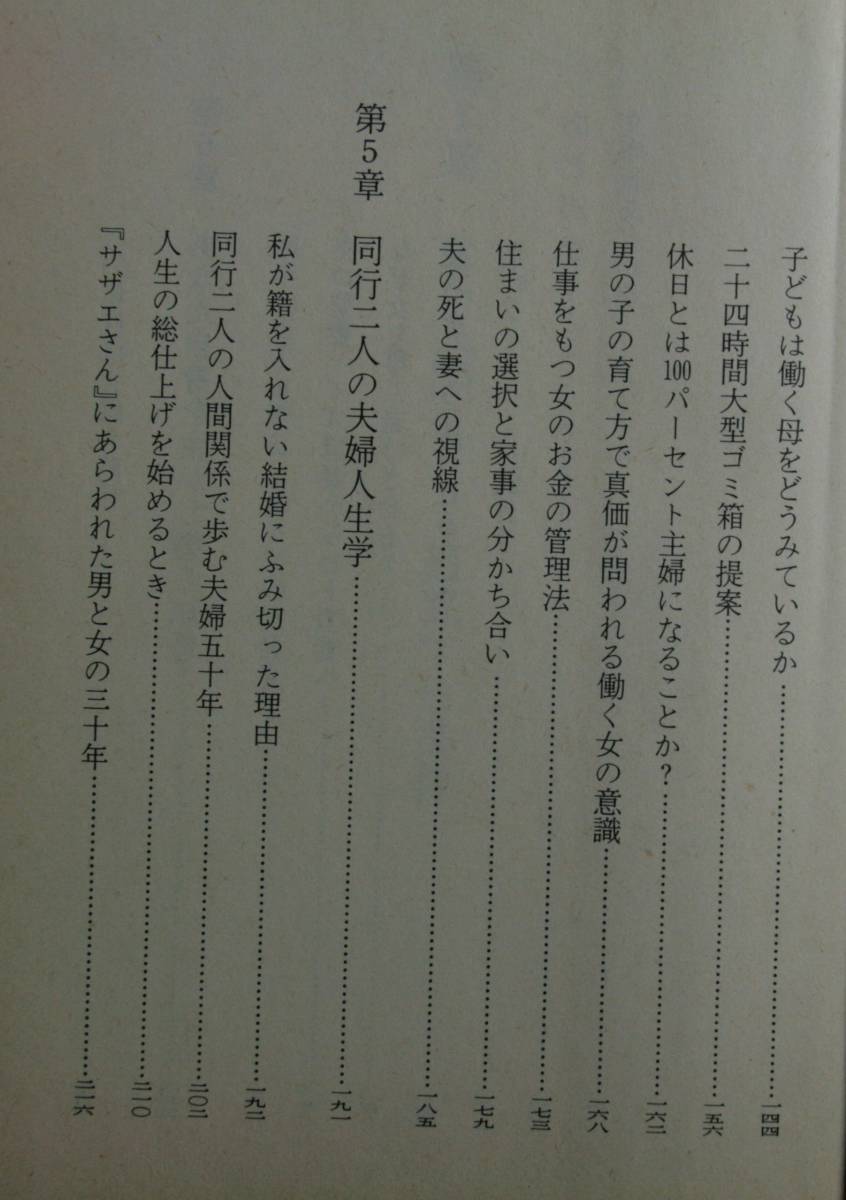 子どもは働く母をどうみているか……一四四
二十四時間大型ゴミ箱の提案……一五六
休日とは100パーセント主婦になることか?……一六二
男の子の育て方で真価が問われる働く女の意識……一六八
仕事をもつ女のお金の管理法……一七三
住まいの選択と家事の分かち合い……一七九
夫の死と妻への視線……一八五
第5章 同行二人の夫婦人生学……一九一
私が籍を入れない結婚にふみ切った理由……一九二
同行二人の人間関係で歩む夫婦五十年……二〇二
人生の総仕上げを始めるとき……二一〇
『サザエさん』にあらわれた男と女の三十年……二一六